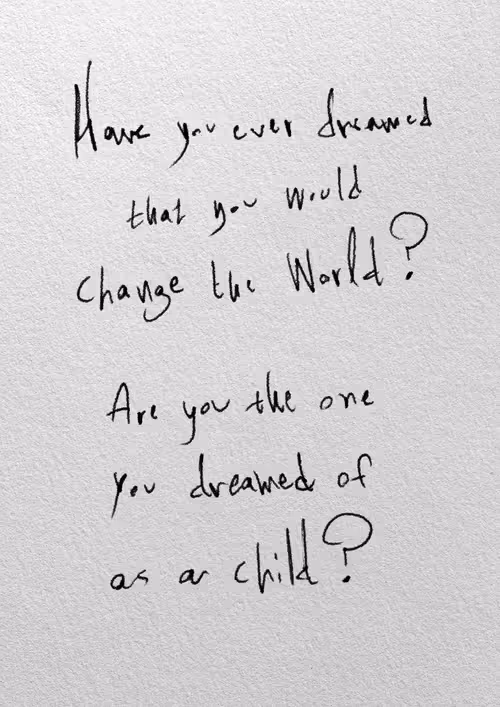 Have you ever dreamed
that you would
change the World?
Are you the one
you dreamed of
as a child?